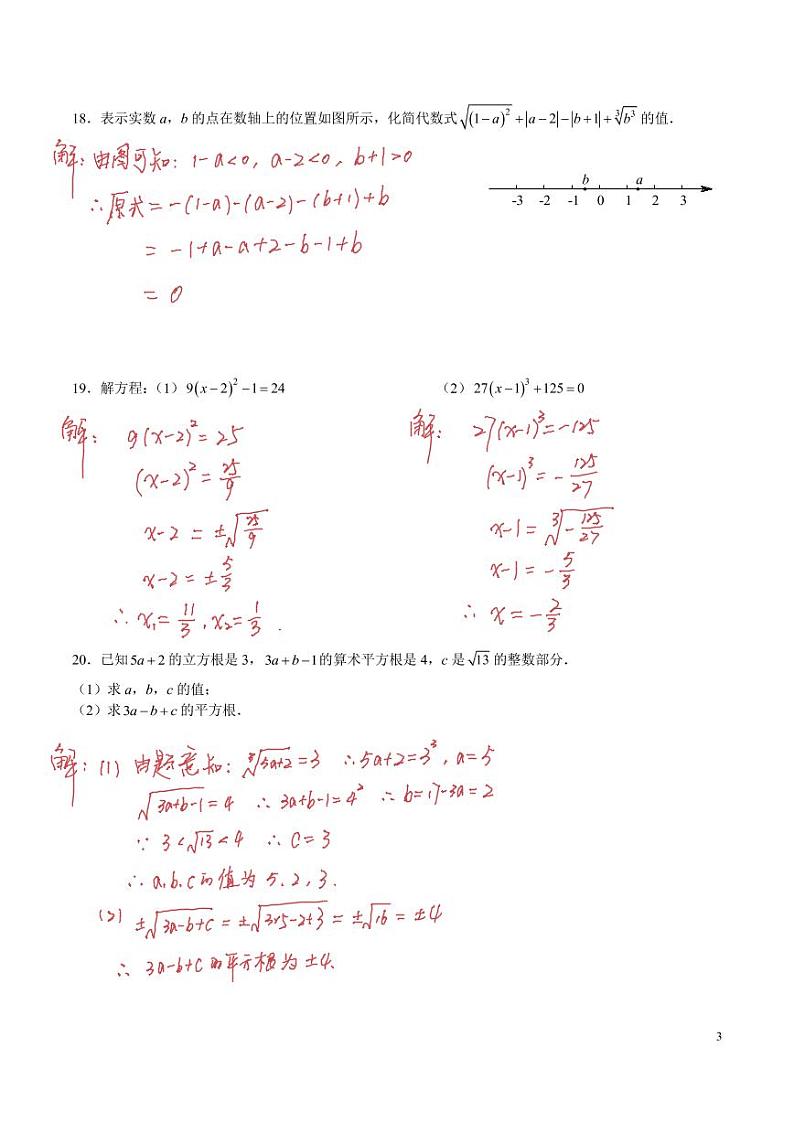 18．表示实数 a，b 的点在数轴上的位置如图所示，化简代数式 √((1−a)²) + |a−2| − |b+1| + ∛(b³) 的值．
解：由图可知：1-a<0，a-2<0，b+1>0
∴原式=-(1-a)-(a-2)-(b+1)+b
=-1+a-a+2-b-1+b
=0
b a
-3 -2 -1 0 1 2 3
19．解方程：（1）9(x−2)²−1=24 （2）27(x−1)³+125=0
解： 9(x-2)²=25
(x-2)²=25/9
x-2=±√(25/9)
x-2=±5/3
∴x₁=11/3，x₂=1/3．
解： 27(x-1)³=-125
(x-1)³=-125/27
x-1=∛(-125/27)
x-1=-5/3
∴ x=-2/3
20．已知 5a+2 的立方根是 3，3a+b−1 的算术平方根是 4，c 是 √13 的整数部分．
（1）求 a，b，c 的值；
（2）求 3a−b+c 的平方根．
解：(1) 由题意知：∛(5a+2)=3 ∴5a+2=3³，a=5
√(3a+b-1)=4 ∴3a+b-1=4² ∴b=17-3a=2
∵ 3<√13<4 ∴c=3
∴a.b.c的值为5．2，3．
(2) ±√(3a-b+c)=±√(3×5-2+3)=±√16=±4
∴ 3a-b+c的平方根为±4．
3